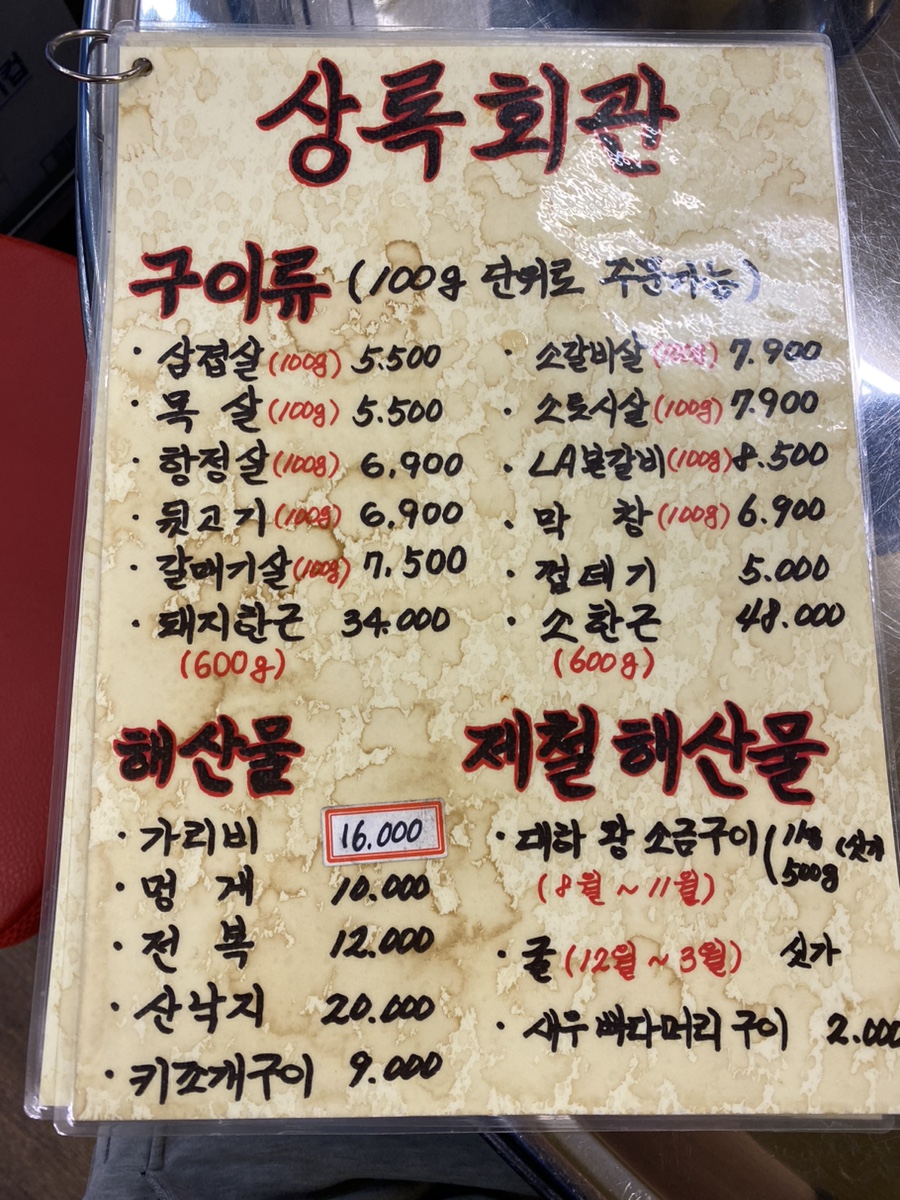 상록회관
구이류 (100g 단위로 주문가능)
· 삼겹살 (100g) 5.500
· 목 살 (100g) 5.500
· 항정살 (100g) 6,900
· 뒷고기 (100g) 6.900
· 갈매기살 (100g) 7,500
· 돼지한근 34.000
(600g)
· 소갈비살 (100g) 7.900
· 소토시살 (100g) 7.900
· LA본갈비 (100g) 8.500
· 막 창 (100g) 6.900
· 껍데기 5.000
· 소한근 48.000
(600g)
해산물
· 가리비 16.000
· 멍 게 10.000
· 전 복 12.000
· 산낙지 20.000
· 키조개구이 9.000
제철 해산물
· 대하 왕 소금구이 (1kg
500g
(8월 ~ 11월)
· 굴 (12월 ~ 3월) 싯가
· 새우 빠다머리 구이 2.000